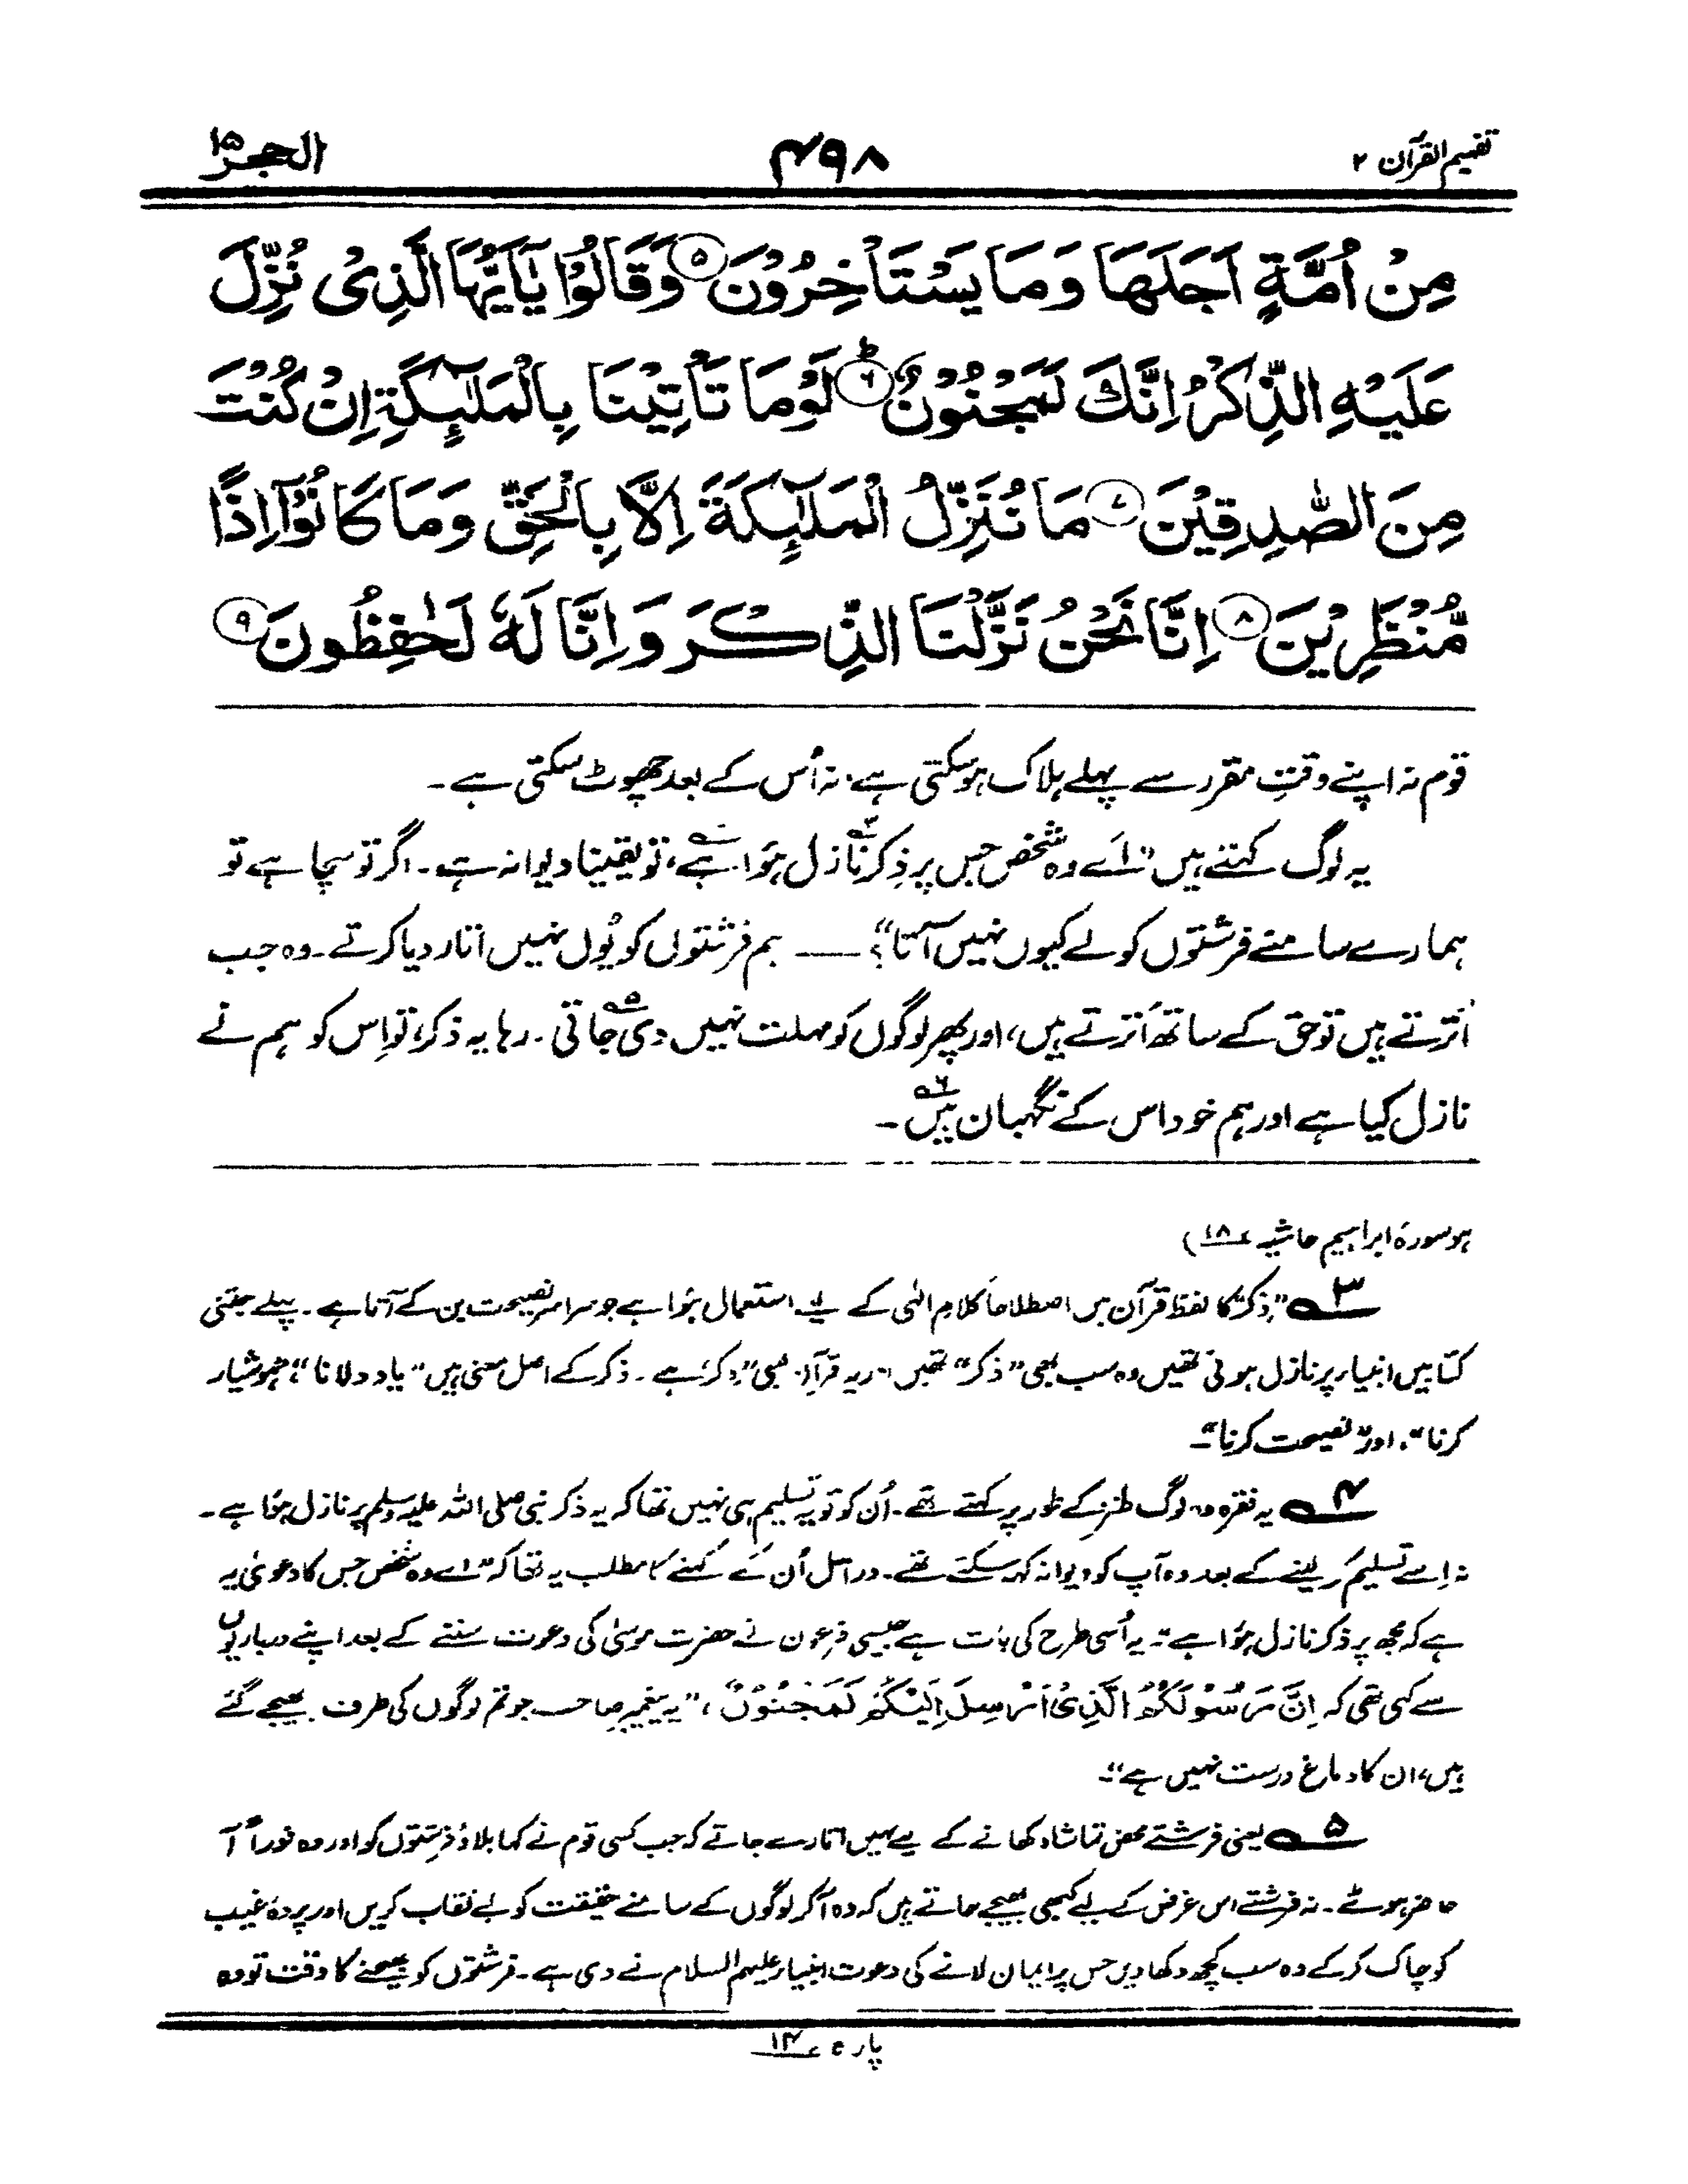 تفہیم القرآن ۲
۴۹۸
الحجر ۱۵
مِنْ اُمَّةٍ اَجَلَهَا وَمَا يَسْتَاْخِرُوْنَ ۵ وَقَالُوْا يٰٓاَيُّهَا الَّذِىْ نُزِّلَ
عَلَيْهِ الذِّكْرُ اِنَّكَ لَمَجْنُوْنٌ ۶ ؕ لَوْ مَا تَاْتِيْنَا بِالْمَلٰٓئِكَةِ اِنْ كُنْتَ
مِنَ الصّٰدِقِيْنَ ۷ مَا نُنَزِّلُ الْمَلٰٓئِكَةَ اِلَّا بِالْحَقِّ وَمَا كَانُوْٓا اِذًا
مُّنْظَرِيْنَ ۸ اِنَّا نَحْنُ نَزَّلْنَا الذِّكْرَ وَاِنَّا لَهٗ لَحٰفِظُوْنَ ۹
قوم نہ اپنے وقتِ مقرر سے پہلے ہلاک ہو سکتی ہے، نہ اُس کے بعد چھوٹ سکتی ہے۔
یہ لوگ کہتے ہیں ”اَے وہ شخص جس پر ذِکر۳ نازل ہوا ہے، تو یقیناً دیوانہ ہے۔ اگر تو سچا ہے تو
ہمارے سامنے فرشتوں کو لے کیوں نہیں آتا“؟ —— ہم فرشتوں کو یُوں نہیں اتار دیا کرتے۔ وہ جب
اُترتے ہیں تو حق کے ساتھ اُترتے ہیں، اور پھر لوگوں کو مہلت نہیں دی جاتی۵۔ رہا یہ ذکر، تو اِس کو ہم نے
نازل کیا ہے اور ہم خود اس کے نگہبان ہیں۶۔
ہو سورۂ ابراہیم حاشیہ ۱۸)
۳ ”ذِکر“ کا لفظ قرآن میں اصطلاحاً کلامِ الٰہی کے لیے استعمال ہُوا ہے جو سراسر نصیحت بن کے آتا ہے۔ پہلے جتنی
کتابیں انبیاء پر نازل ہوئی تھیں وہ سب بھی ”ذکر“ تھیں اور یہ قرآن بھی ”ذِکر“ ہے۔ ذکر کے اصل معنی ہیں ”یاد دلانا“، ”ہوشیار
کرنا“، اور ”نصیحت کرنا“۔
۴ یہ فقرہ وہ لوگ طنز کے طور پر کہتے تھے۔ اُن کو تو یہ تسلیم ہی نہیں تھا کہ یہ ذکر نبی صلی اللہ علیہ وسلم پر نازل ہُوا ہے۔
نہ اِسے تسلیم کر لینے کے بعد وہ آپ کو دیوانہ کہہ سکتے تھے۔ دراصل اُن کے کہنے کا مطلب یہ تھا کہ ”اے وہ شخص جس کا دعویٰ یہ
ہے کہ مجھ پر ذکر نازل ہُوا ہے“۔ یہ اُسی طرح کی بات ہے جیسی فرعون نے حضرت موسیٰ کی دعوت سننے کے بعد اپنے درباریوں
سے کہی تھی کہ اِنَّ رَسُوْلَكُمُ الَّذِىْٓ اُرْسِلَ اِلَيْكُمْ لَمَجْنُوْنٌ، ”یہ پیغمبر صاحب جو تم لوگوں کی طرف بھیجے گئے
ہیں، ان کا دماغ درست نہیں ہے“۔
۵ یعنی فرشتے محض تماشا دکھانے کے لیے نہیں اتارے جاتے کہ جب کسی قوم نے کہا بلاؤ فرشتوں کو اور وہ فوراً آ
حاضر ہوئے۔ نہ فرشتے اس غرض کے لیے کبھی بھیجے جاتے ہیں کہ وہ آکر لوگوں کے سامنے حقیقت کو بے نقاب کریں اور پردۂ غیب
کو چاک کر کے وہ سب کچھ دکھا دیں جس پر ایمان لانے کی دعوت انبیاء علیہم السلام نے دی ہے۔ فرشتوں کو بھیجنے کا وقت تو وہ
پارہ ۱۴